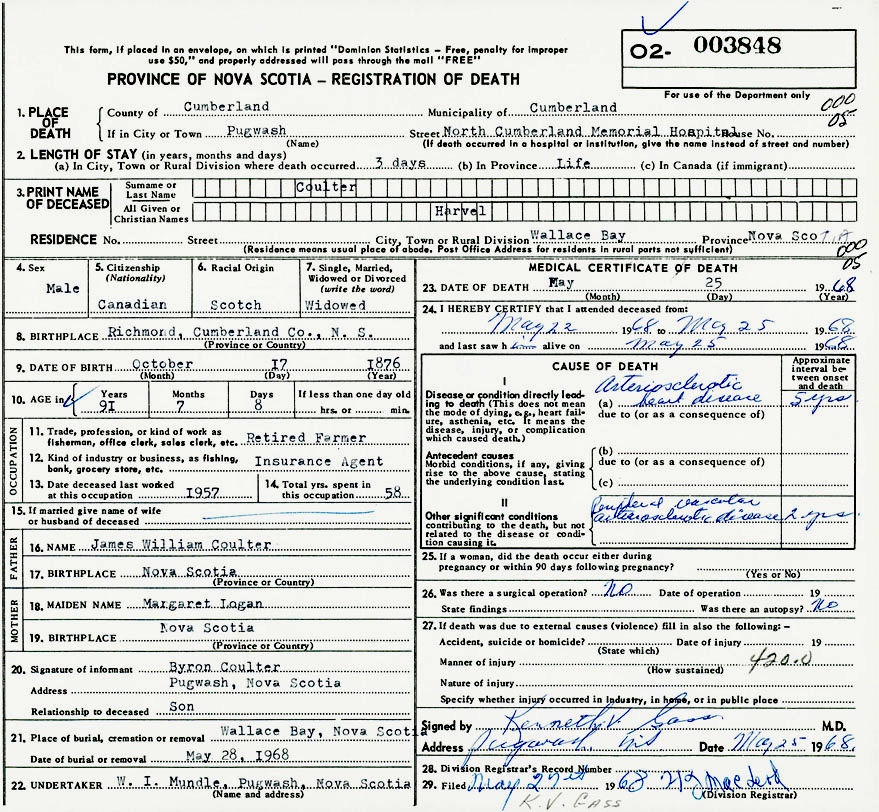 This form, if placed in an envelope, on which is printed "Dominion Statistics - Free, penalty for improper
use $50," and properly addressed will pass through the mail "FREE"
PROVINCE OF NOVA SCOTIA – REGISTRATION OF DEATH
O2- 003848
For use of the Department only
000
05
1. PLACE OF DEATH County of Cumberland Municipality of Cumberland
If in City or Town Pugwash Street North Cumberland Memorial Hospital House No.
(Name) (If death occurred in a hospital or institution, give the name instead of street and number)
2. LENGTH OF STAY (in years, months and days)
(a) In City, Town or Rural Division where death occurred 3 days (b) In Province Life (c) In Canada (if immigrant)
3. PRINT NAME OF DECEASED Surname or Last Name Coulter
All Given or Christian Names Harvel
RESIDENCE No. Street City, Town or Rural Division Wallace Bay Province Nova Scotia
(Residence means usual place of abode. Post Office Address for residents in rural parts not sufficient)
000
05
4. Sex Male
5. Citizenship (Nationality) Canadian
6. Racial Origin Scotch
7. Single, Married, Widowed or Divorced (write the word) Widowed
8. BIRTHPLACE Richmond, Cumberland Co., N. S.
(Province or Country)
9. DATE OF BIRTH October 17 1876
(Month) (Day) (Year)
10. AGE in Years 91 Months 7 Days 8 If less than one day old hrs. or min.
OCCUPATION
11. Trade, profession, or kind of work as fisherman, office clerk, sales clerk, etc. Retired Farmer
12. Kind of industry or business, as fishing, bank, grocery store, etc. Insurance Agent
13. Date deceased last worked at this occupation 1957
14. Total yrs. spent in this occupation 58
15. If married give name of wife or husband of deceased
FATHER
16. NAME James William Coulter
17. BIRTHPLACE Nova Scotia
(Province or Country)
MOTHER
18. MAIDEN NAME Margaret Logan
19. BIRTHPLACE Nova Scotia
(Province or Country)
20. Signature of informant Byron Coulter
Address Pugwash, Nova Scotia
Relationship to deceased Son
21. Place of burial, cremation or removal Wallace Bay, Nova Scotia
Date of burial or removal May 28, 1968
22. UNDERTAKER W. I. Mundle, Pugwash, Nova Scotia
(Name and address)
MEDICAL CERTIFICATE OF DEATH
23. DATE OF DEATH May 25 1968
(Month) (Day) (Year)
24. I HEREBY CERTIFY that I attended deceased from:
May 22 1968 to May 25 1968
and last saw h im alive on May 25 1968
CAUSE OF DEATH
Approximate interval between onset and death
I
Disease or condition directly leading to death (This does not mean the mode of dying, e.g., heart failure, asthenia, etc. It means the disease, injury, or complication which caused death.)
(a) Arteriosclerotic heart disease 5 yrs
due to (or as a consequence of)
Antecedent causes
Morbid conditions, if any, giving rise to the above cause, stating the underlying condition last.
(b)
due to (or as a consequence of)
(c)
II
Other significant conditions contributing to the death, but not related to the disease or condition causing it.
Peripheral vascular
arteriosclerotic disease 2 yrs
25. If a woman, did the death occur either during
pregnancy or within 90 days following pregnancy?
(Yes or No)
26. Was there a surgical operation? No Date of operation 19
State findings Was there an autopsy? No
27. If death was due to external causes (violence) fill in also the following:–
Accident, suicide or homicide? Date of injury 19
(State which)
Manner of injury 420.0
(How sustained)
Nature of injury
Specify whether injury occurred in industry, in home, or in public place
Signed by Kenneth V. Gass M.D.
Address Pugwash, NS Date May 25 1968.
28. Division Registrar's Record Number
29. Filed May 27th 1968 MacLeod
(Division Registrar)
K.V. GASS